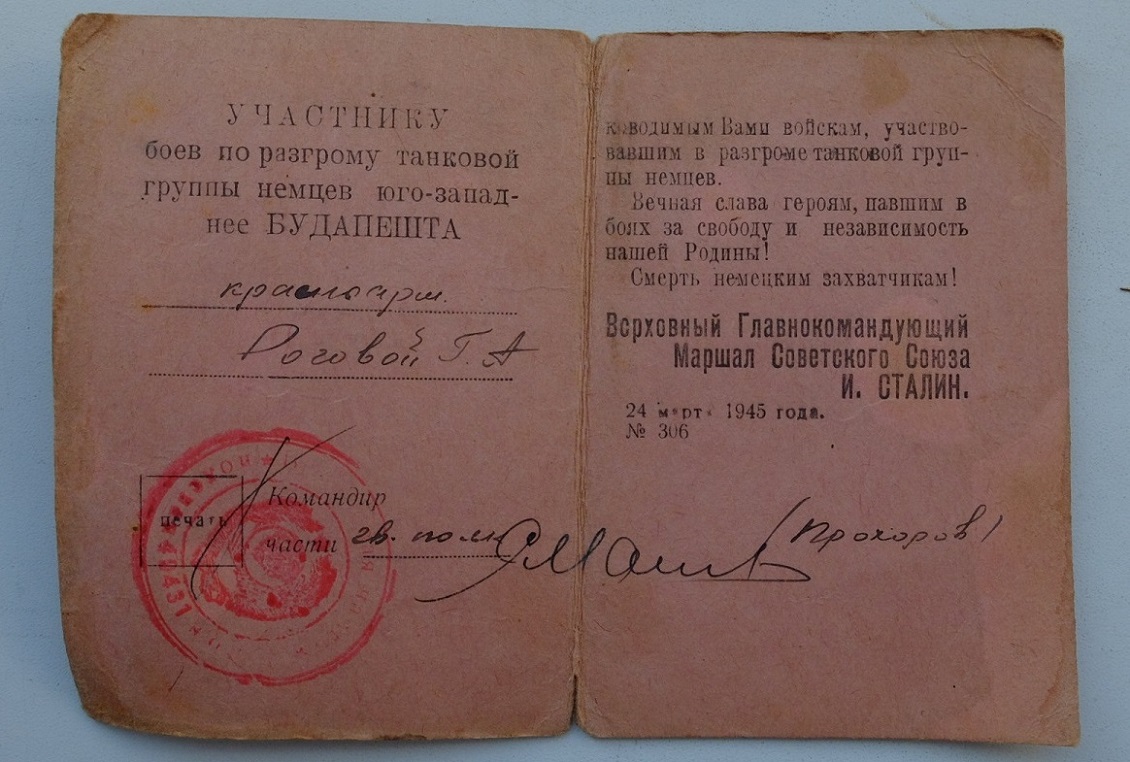 УЧАСТНИКУ
боев по разгрому танковой
группы немцев юго-запад-
нее БУДАПЕШТА
красноарм.
Роговой Г. А
печать
Командир
части гв. полк
ководимым Вами войскам, участво-
вавшим в разгроме танковой груп-
пы немцев.
Вечная слава героям, павшим в
боях за свободу и независимость
нашей Родины!
Смерть немецким захватчикам!
Верховный Главнокомандующий
Маршал Советского Союза
И. СТАЛИН.
24 марта 1945 года.
№ 306
(Прохоров)